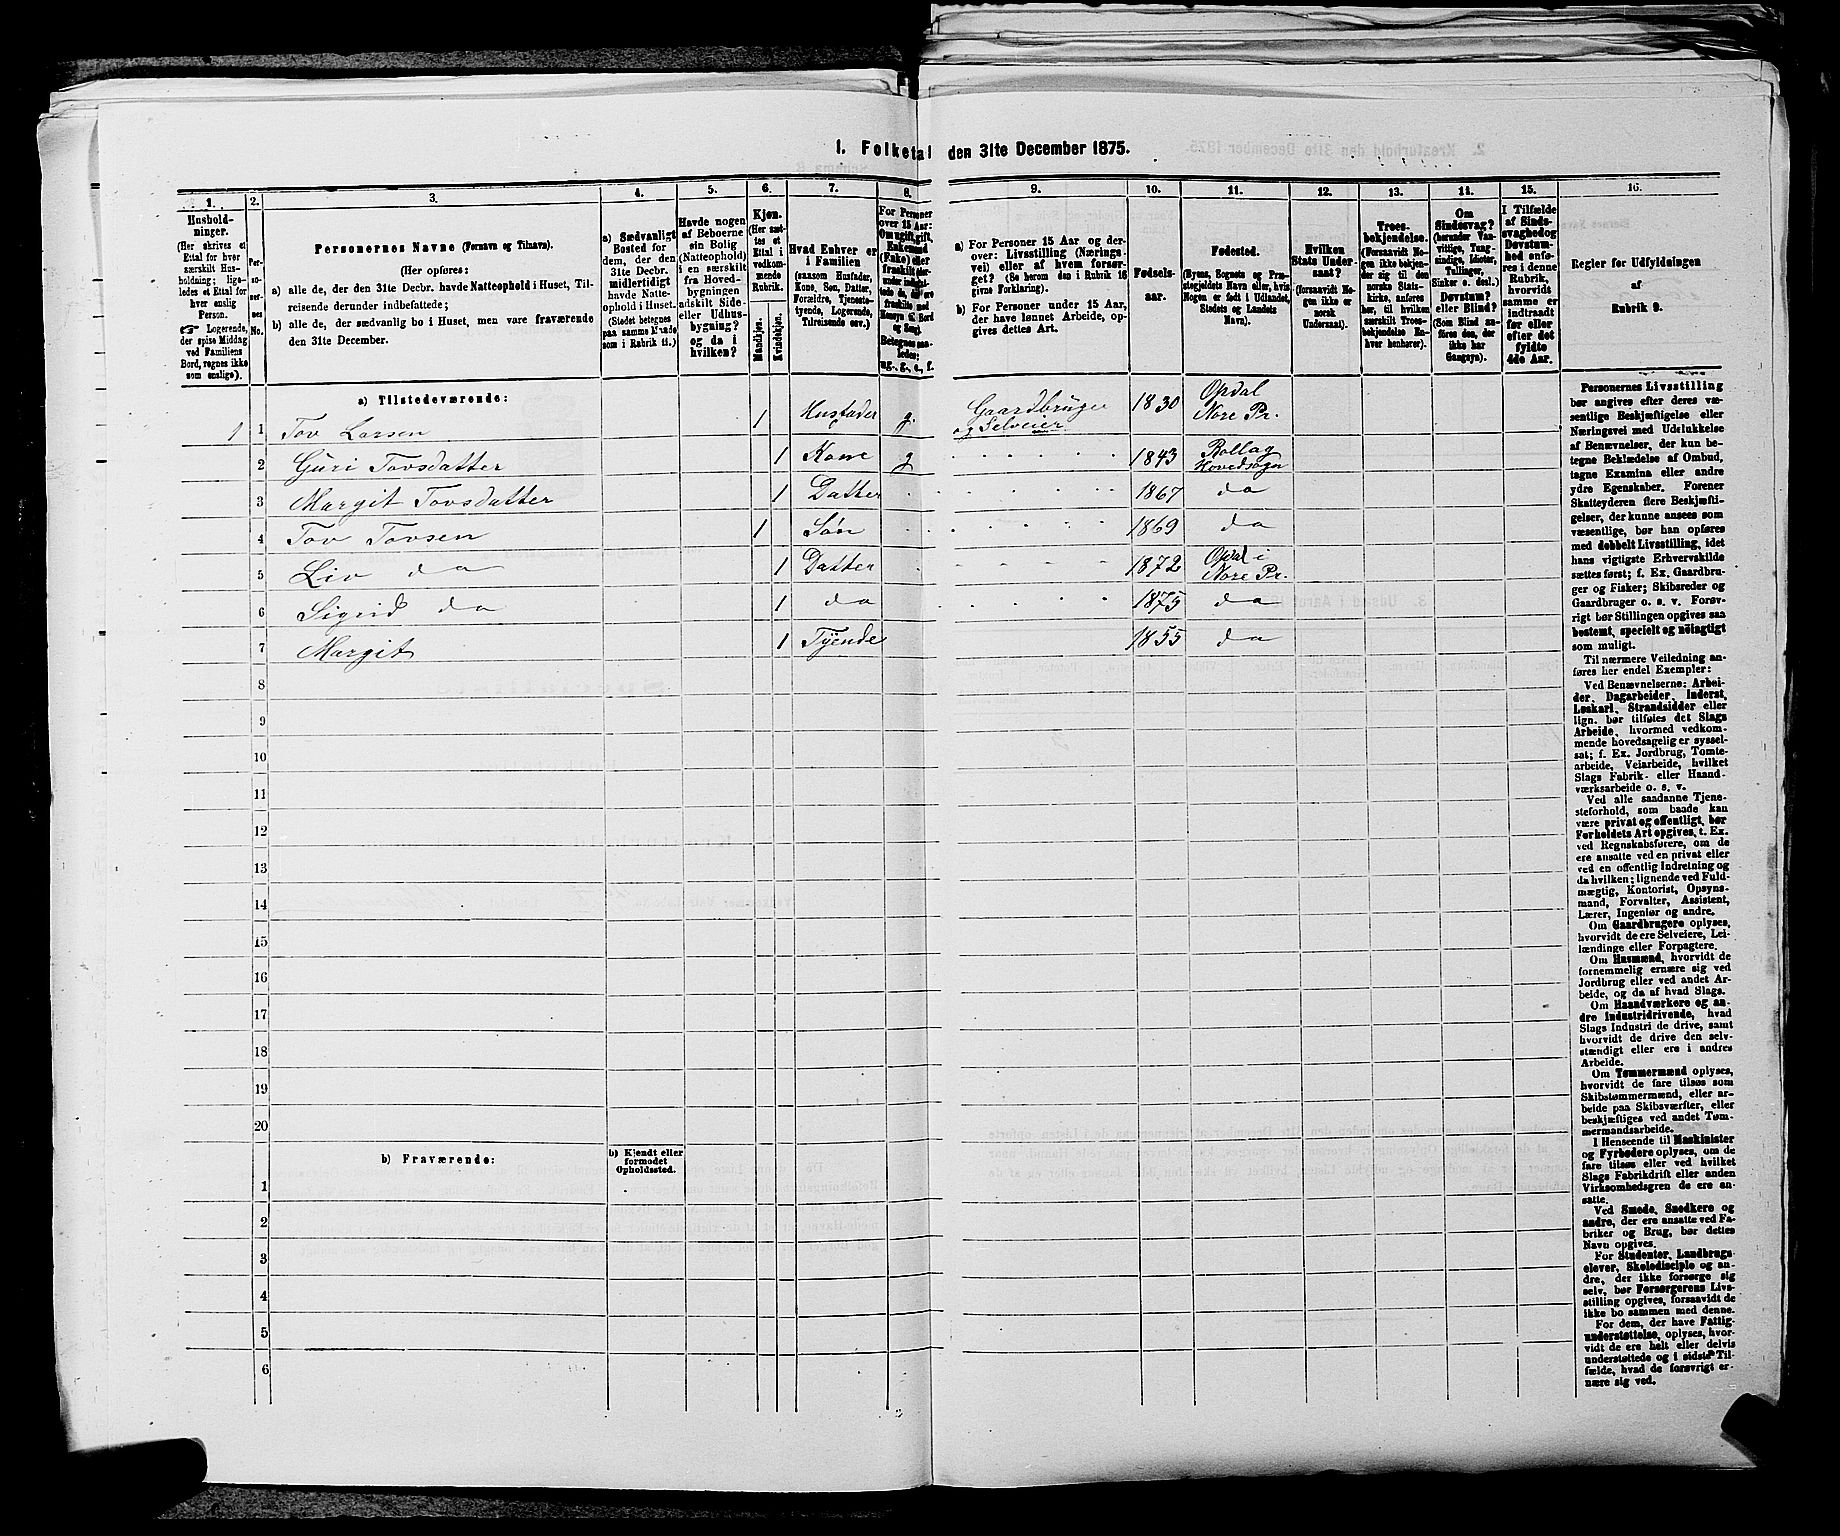 1. Folketal den 31te December 1875.
1.
Hushold-
ninger.
(Her skrives et
Ettal for hver
særskilt Hus-
holdning; lige-
ledes et Ettal for
hver enslig
Person.
Logerende,
der spise Middag
ved Familiens
Bord, regnes ikke
som enslige).
2.
Per-
so-
ner-
nes
No.
3.
Personernes Navne (Fornavn og Tilnavn).
(Her opføres:
a) alle de, der den 31te Decbr. havde Natteophold i Huset, Til-
reisende derunder indbefattede;
b) alle de, der sædvanlig bo i Huset, men vare fraværende
den 31te December.
4.
a) Sædvanligt
Bosted for
dem, der den
31te Decbr.
midlertidigt
havde Natte-
ophold i Huset.
(Stedet betegnes
paa samme Maade
som i Rubrik 11.)
5.
Havde nogen
af Beboerne
sin Bolig
(Natteophold)
i en særskilt
fra Hoved-
bygningen
adskilt Side-
eller Udhus-
bygning?
og da i
hvilken?
6.
Kjøn.
(Her sæt-
tes et
Ettal i
vedkom-
mende
Rubrik.
Mandkjøn.
Kvindekjøn.
7.
Hvad Enhver er
i Familien
(saasom Husfader,
Kone, Søn, Datter,
Forældre, Tjeneste-
tyende, Logerende,
Tilreisende osv.)
8.
For Personer
over 15 Aar:
9.
a) For Personer 15 Aar og der-
over: Livsstilling (Nærings-
vei) eller af hvem forsør-
get? (Se herom den i Rubrik 16
givne Forklaring).
b) For Personer under 15 Aar,
der have lønnet Arbeide, op-
gives dettes Art.
10.
Fødsels-
aar.
11.
Fødested.
(Byens, Sognets og Præ-
stegjeldets Navn eller, hvis
Nogen er født i Udlandet,
Stedets og Landets
Navn).
12.
Hvilken
Stats Under-
saat?
(forsaavidt No-
gen ikke er
norsk
Undersaat).
13.
Troes-
bekjendelse.
(Forsaavidt No-
gen ikke bekjen-
der sig til den
norske Stats-
kirke, anføres
her, til hvilken
særskilt Troes-
bekjendelse En-
hver henhører).
14.
Om
Sindssvag?
(herunder Van-
vittige, Tung-
sindige, Idioter,
Tullinger,
Sinker o. desl.)
Døvstum?
eller Blind?
(Som Blind an-
føres den, der
ikke har
Gangsyn).
15.
I Tilfælde
af Sinds-
svaghed og
Døvstum-
hed anfø-
res i denne
Rubrik,
hvorvidt
samme er
indtraadt
før eller
efter det
fyldte
4de Aar.
16.
Regler for Udfyldningen
af
Rubrik 9.
a) Tilstedeværende:
1 1 Tov Larsen 1 Husfader g. Gaardbruger og Selveier 1830 Opdal Nore Pr.
2 Guri Tovsdatter 1 Kone g 1843 Rollag Hovedsogn
3 Margit Tovsdatter 1 Datter 1867 do
4 Tov Tovsen 1 Søn 1869 do
5 Liv do 1 Datter 1872 Opdal i Nore Pr.
6 Sigrid do 1 do 1875 do
7 Margit 1 Tyende 1855 do
8
9
10
11
12
13
14
15
16
17
18
19
20
b) Fraværende:
b) Kjendt eller
formodet
Opholdssted.
1
2
3
4
5
6
Personernes Livsstilling
bør angives efter deres væ-
sentlige Beskjæftigelse eller
Næringsvei med Udelukkelse
af Benævnelser, der kun be-
tegne Beklædelse af Ombud,
tagne Examina eller andre
ydre Egenskaber. Forener
Skatteyderen flere Beskjæfti-
gelser, der kunne ansees som
væsentlige, bør han opføres
med dobbelt Livsstilling, idet
hans vigtigste Erhvervskilde
sættes først; f. Ex. Gaardbru-
ger og Fisker; Skibsreder og
Gaardbruger o. s. v. Forøv-
rigt bør Stillingen opgives saa
bestemt, specielt og nöiagtigt
som muligt.
Til nærmere Veiledning an-
føres her endel Exempler:
Ved Benævnelserne: Arbei-
der, Dagarbeider, Inderst,
Løskarl, Strandsidder eller
lign. bør tilføies det Slags
Arbeide, hvormed vedkom-
mende hovedsagelig er syssel-
sat; f. Ex. Jordbrug, Tomte-
arbeide, Veiarbeide, hvilket
Slags Fabrik- eller Haand-
værksarbeide o. s. v.
Ved alle saadanne Tjene-
steforhold, som baade kan
være privat og offentligt, bør
Forholdets Art opgives, t. Ex.
ved Regnskabsførere, om de
ere ansatte ved en privat eller
ved en offentlig Indretning og
da hvilken; lignende ved Fuld-
mægtig, Kontorist, Opsyns-
mand, Forvalter, Assistent,
Lærer, Ingeniør og andre.
Om Gaardbrugere oplyses,
hvorvidt de ere Selveiere, Lei-
lændinge eller Forpagtere.
Om Husmænd, hvorvidt de
fornemmelig ernære sig ved
Jordbrug eller ved andet Ar-
beide, og da af hvad Slags.
Om Haandværkere og an-
dre Industridrivende, hvad
Slags Industri de drive, samt
hvorvidt de drive den selv-
stændigt eller ere i andres
Arbeide.
Om Tømmermænd oplyses,
hvorvidt de fare tilsøs som
Skibstømmermænd, eller ar-
beide paa Skibsværfter, eller
beskjæftiges ved andet Tøm-
mermandsarbeide.
I Henseende til Maskinister
og Fyrbødere oplyses, om de
fare tilsøs eller ved hvilket
Slags Fabrikdrift eller anden
Virksomhedsgren de ere an-
satte.
Ved Smede, Snedkere og
andre, der ere ansatte ved Fa-
briker og Brug, bør dettes
Navn opgives.
For Studenter, Landbrugs-
elever, Skoledisciple og an-
dre, der ikke forsørge sig
selv, bør Forsørgerens Livs-
stilling opgives, forsaavidt de
ikke bo sammen med denne.
For dem, der have Fattig-
understøttelse, oplyses, hvor-
vidt de ere helt eller delvis
understøttede og i sidste Til-
fælde, hvad de forøvrigt er-
nære sig ved.